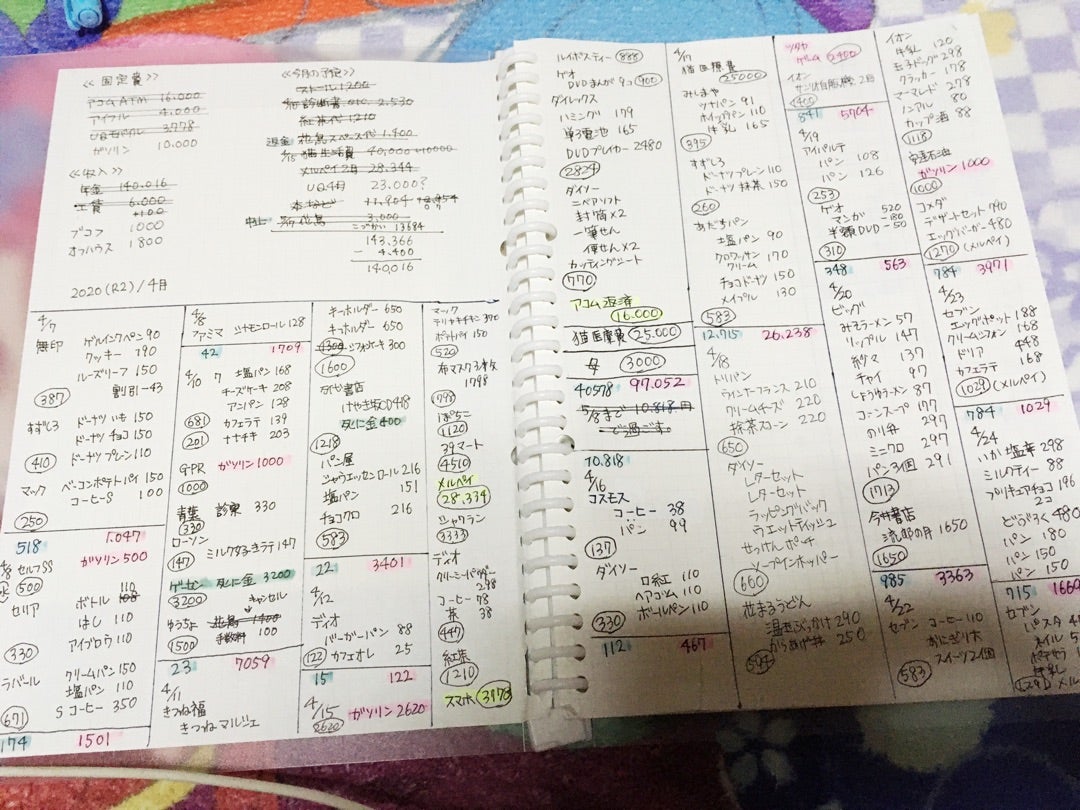 ≪固定費≫
アコムATM 16.000
アイフル 4.000
UQモバイル 3.778
ガソリン 10.000
≪収入≫
年金 140.016
工賃 6.000
+100
ブコフ 1000
オフハウス 1800
2020(R2)/4月
≪今月の予定≫
ストール1200
診断書 2.530
紅茶代1210
返金 花鳥スペース代 1.400
猫生活費 40,000+10000
メルペイ2月 28.344
UQ4月 23.000?
11.904
中止 花鳥 3,000
こづかい 13684
143.366
- 4.400
140,016
4/7
無印 ゲルインクペン 90
クッキー 190
ルーズリーフ 150
割引-43
387
すずしろ ドーナツ いも 150
ドーナツ チョコ 150
410 ドーナツ プレン 110
マック ベーコンポテトパイ 150
コーヒーS 100
250
518 1.047
セルフSS ガソリン 500
500
セリア ボトル 110
はし 110
アイブロウ 110
330
クリームパン 150
ラパール 塩パン 110
Sコーヒー 350
671
174 1501
4/8
ファミマ シナモンロール 128
42 1709
4/10 ク 塩パン 168
チーズケーキ 208
アンパン 128
681 カフェラテ 139
201 ナナチキ 203
GPR ガソリン1000
1000
青葉 診察 330
330
ローソン
147 ミルクたっぷりラテ 147
ゲーセン タバコ金 3200
3200 キャンセル
ゆうちょ 花鳥 1400
1500 手数料 100
23 7059
4/11
きつね福
きつねマルシェ
キーホルダー 650
キーホルダー 650
1300 シフォンケーキ 300
1600
古代書店
けやき坂CD 418
1218
パン屋
ジャウエッセンロール 216
塩パン 151
チョコクロ 216
583
22 3401
4/12
ディオ
バーガーパン 88
122 カフェオレ 25
15 122
4/15 ガソリン 2620
2620
マック
テリヤキチキン 370
ポテトパイ 150
520
布マスク3枚
1798
1798
ぱちこ
1120
39マート
4510
メルペイ
28.334
ジャクラン
3333
ディオ
クリーミーパウダー
298
コーヒー 78
茶 38
447
紅茶
1210
スマホ 3978
ルイボスティー 888
ゲオ
DVDまんが9コ 900
ダイレックス
ハミング 179
単3電池 165
DVDプレイヤー 2480
2824
ダイソー
ニベアソフト
封筒×2
一筆せん
便せん×2
カッティングシート
770
アコム返済
16.000
猫医療費 25.000
母 3000
40578 97.052
5/8まで 10.818円
で過ごす。
10.818
4/16
コスモス
コーヒー 38
パン 99
137
ダイソー
口紅 110
ヘアゴム 110
330 ボールペン 110
112 467
4/17
猫医療費
25000
みしまや
ツナパン 91
ホイップパン 110
牛乳 165
395
すずしろ
ドーナツプレン 110
ドーナツ抹茶 150
260
あだちパン
塩パン 90
クロワッサン 170
クリーム
チョコドーナツ 150
メイプル 130
583
12.715 26.238
4/18
トリパン
ウインナーフランス 210
クリームチーズ 220
抹茶スコーン 220
650
ダイソー
レターセット
レターセット
ラッピングバック
ウエットティッシュ
せっけんポーチ
ソープインホッパー
660
花まるうどん
温玉ぶっかけ 290
からあげ丼 250
594
ツタヤ
ゲーム 2400
イオン
サンリオ自販機 2回
400
841 5704
4/19
アイパルテ
パン 108
パン 126
253
ゲオ 520
マンガ -180
半額DVD -50
310
348 563
4/20
ビッグ
みそラーメン 57
リップル 147
紗々 137
チャイ 97
しょうゆラーメン 87
コーンスープ 177
のり弁 297
ミニクロ 297
パン3個 291
1713
今井書店
流郎の月 1650
1650
985 3363
4/22
セブン コーヒー 110
おにぎり×
スイーツ2個
583
イオン
牛乳 120
玉子ドッグ 298
クラッカー 178
マーマレド 278
ノンアル 80
カップ酒 88
1118
安達石油
ガソリン 1000
1000
コメダ
デザートセット 790
エッグバーガー 480
1270 (メルペイ)
784 3971
4/23
セブン
エッグポット 188
クリームシフォン 168
ドリア 448
カフェラテ 168
1029 (メルペイ)
784 1029
4/24
いか塩辛 298
ミルクティー 88
プリキュアチョコ 196
2コ
どぶろく 480
パン 180
パン 150
パン 150
715 1660
セブン
パスタ